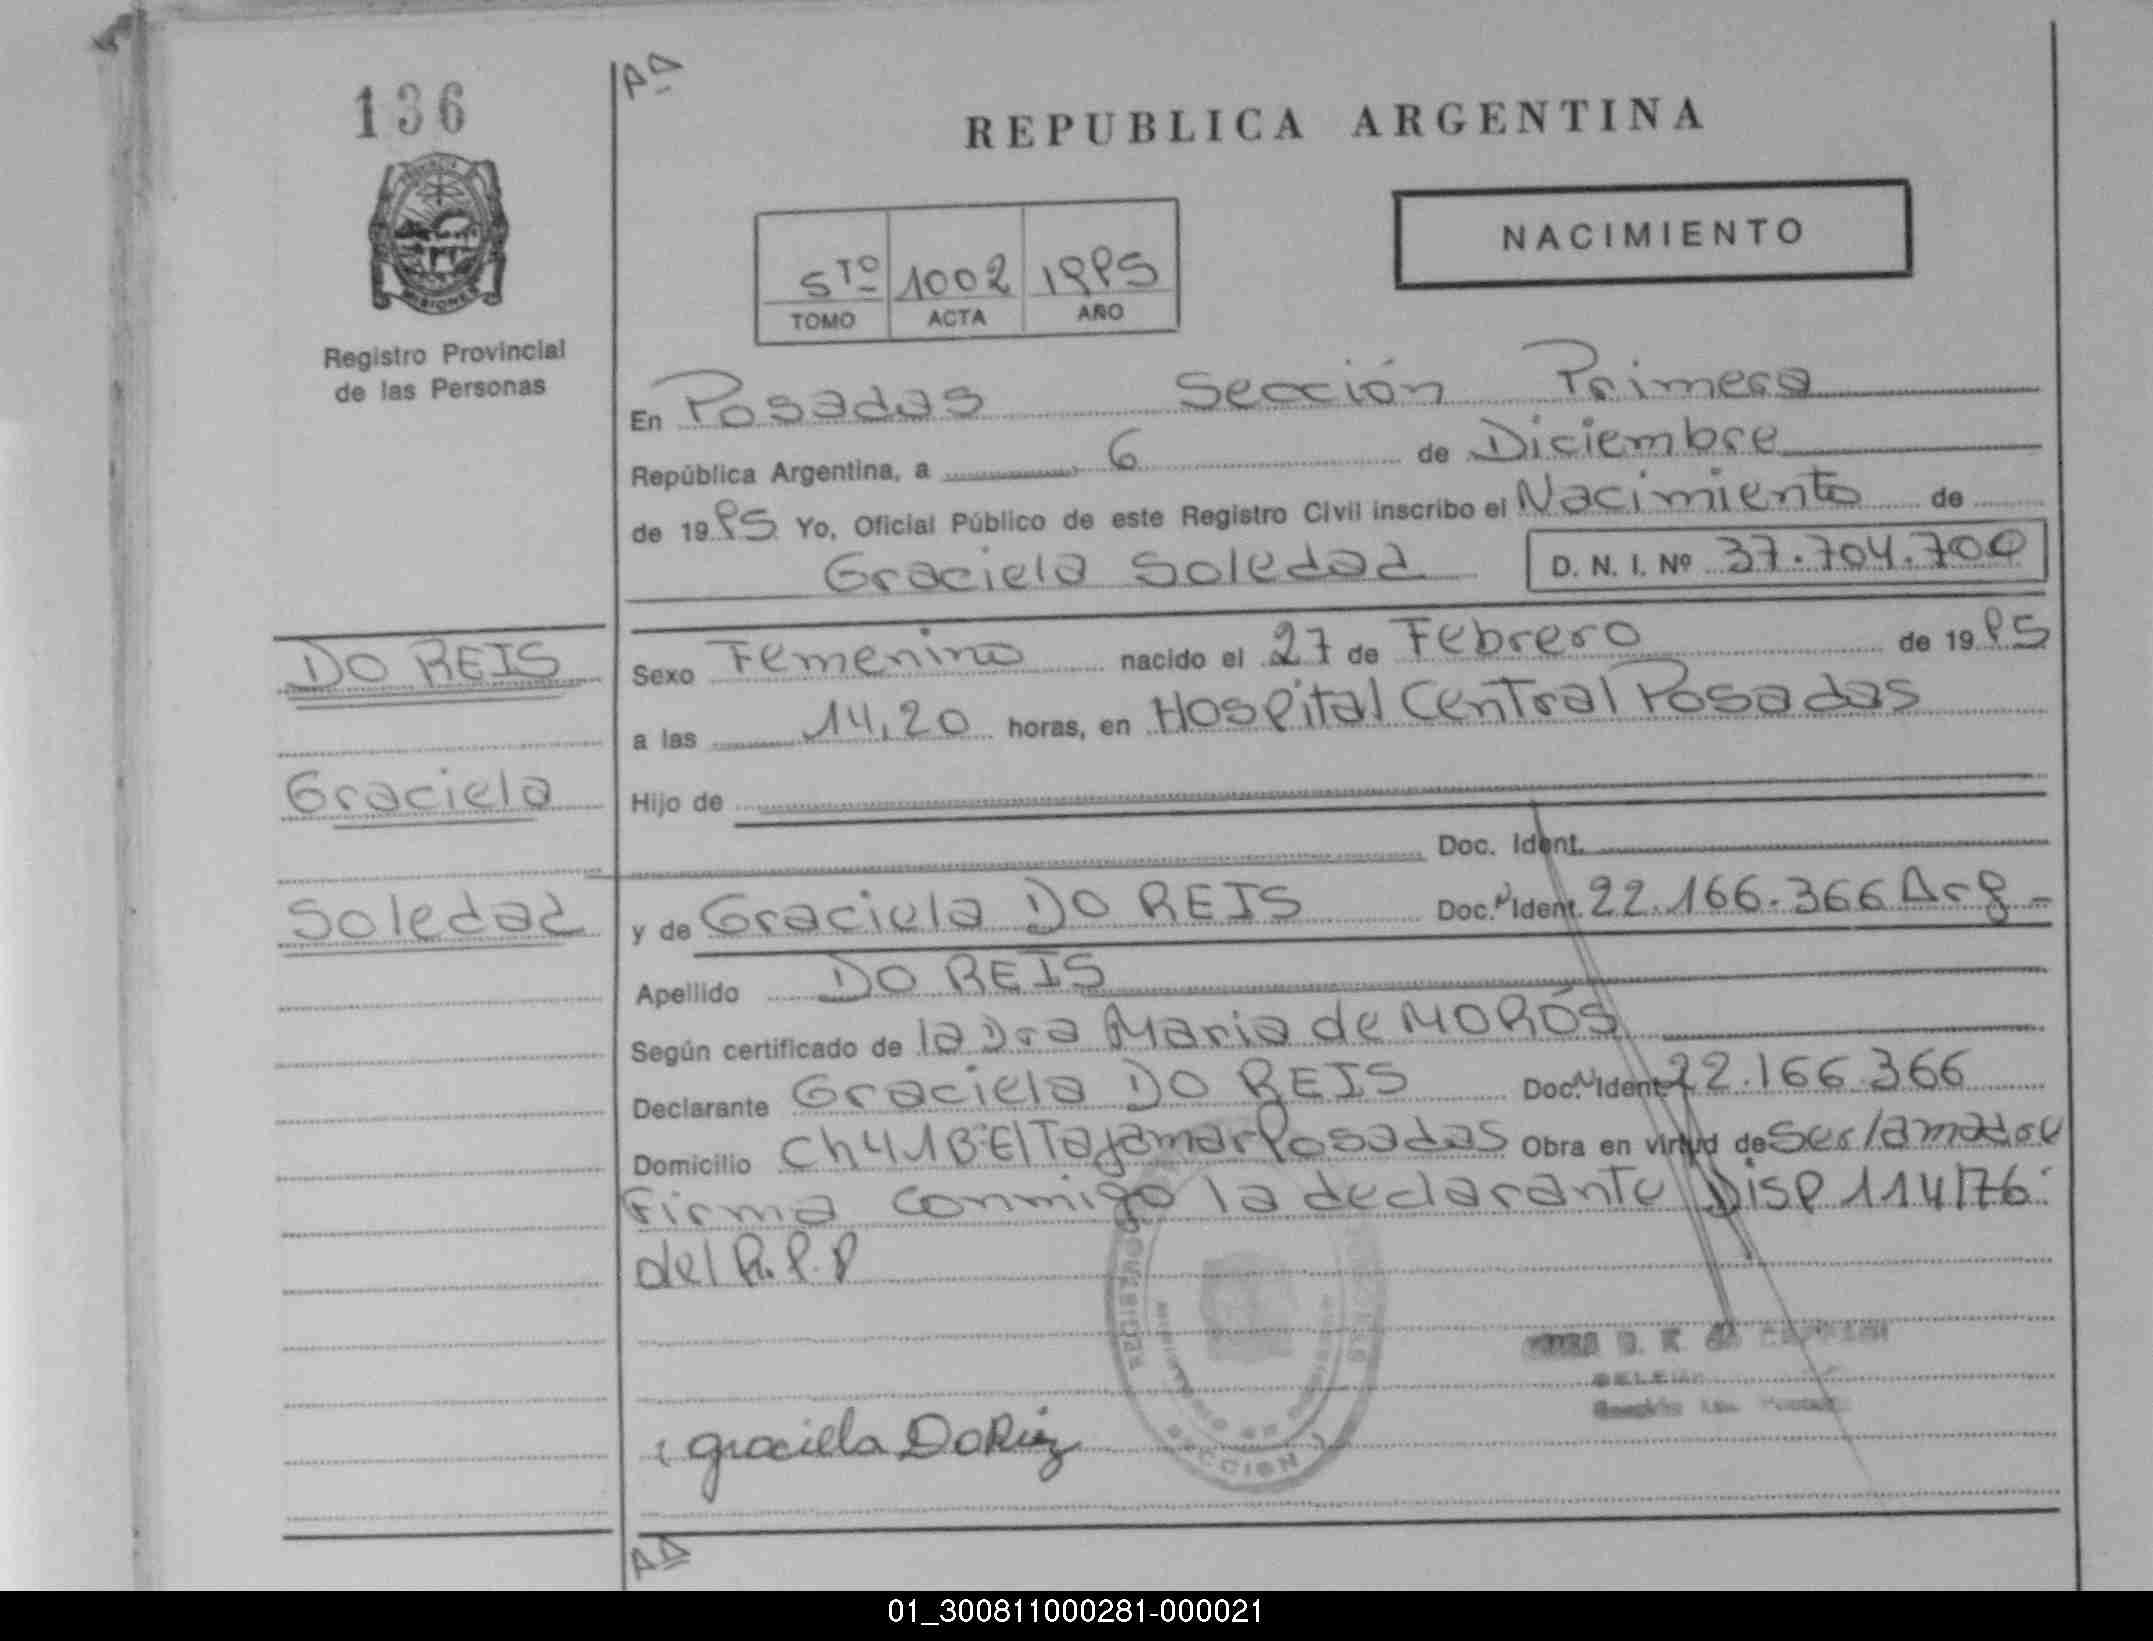 136
AD
REPUBLICA ARGENTINA
NACIMIENTO
5TO 1002 1995
TOMO ACTA AÑO
MISIONES
Registro Provincial
de las Personas
En Posadas Sección Primera
República Argentina, a 6 de Diciembre
de 1995 Yo, Oficial Público de este Registro Civil inscribo el Nacimiento de
Graciela Soledad D. N. I. Nº 37.704.700
DO REIS
Graciela
Soledad
Sexo Femenino nacido el 27 de Febrero de 1995
a las 14,20 horas, en Hospital Central Posadas
Hijo de
Doc. Ident.
y de Graciela DO REIS Doc. Ident. 22.166.366 Arg
Apellido DO REIS
Según certificado de la Dra Maria de MORÓS
Declarante Graciela DO REIS Doc. Ident 22.166.366
Domicilio Ch 41 B: El Tajamar Posadas Obra en virtud de ser la madre
Firma conmigo la declarante Disp 114/76
del R.P.P
SECCION 1
graciela Do Reis
AD
01_300811000281-000021